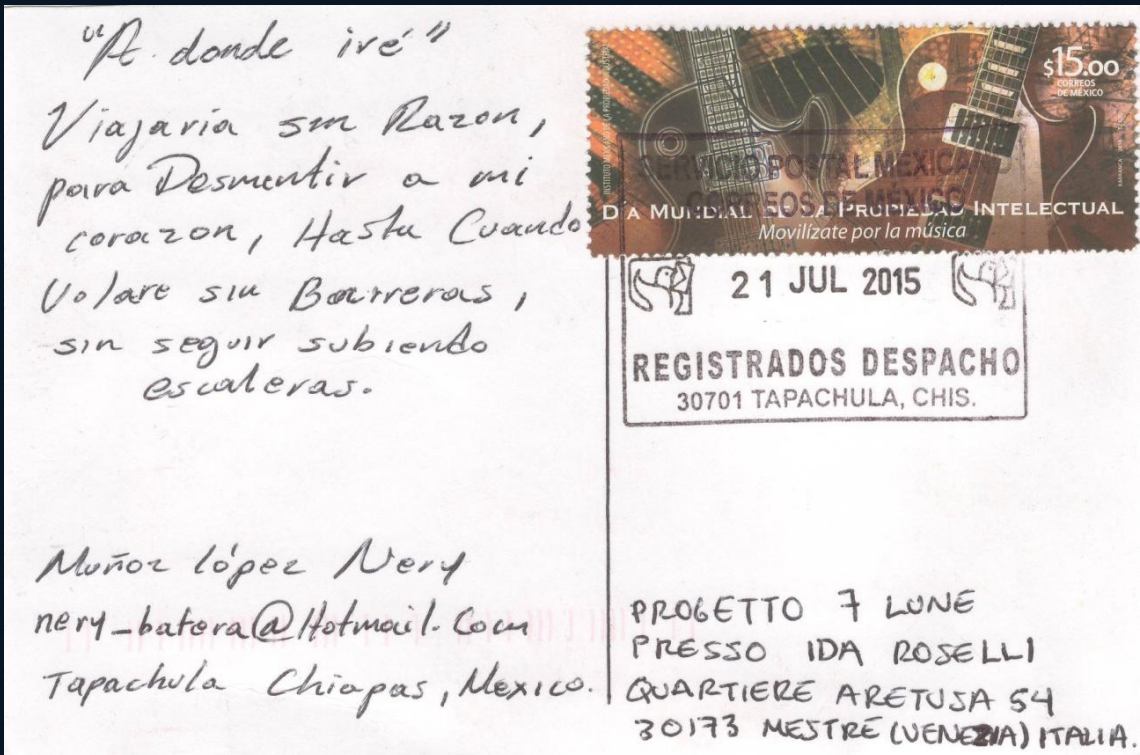 "A donde iré"
Viajaria sin Razon,
para Desmentir a mi
corazon, Hasta Cuando
Volare sin Barreras,
sin seguir subiendo
escaleras.
Muñoz lópez Nery
nery_batera@Hotmail.Com
Tapachula Chiapas, Mexico.
$15.00
CORREOS
DE MÉXICO
DÍA MUNDIAL DE LA PROPIEDAD INTELECTUAL
Movilízate por la música
SERVICIO POSTAL MEXICANO
CORREOS DE MÉXICO
21 JUL 2015
REGISTRADOS DESPACHO
30701 TAPACHULA, CHIS.
PROGETTO 7 LUNE
PRESSO IDA ROSELLI
QUARTIERE ARETUSA 54
30173 MESTRE (VENEZIA) ITALIA.